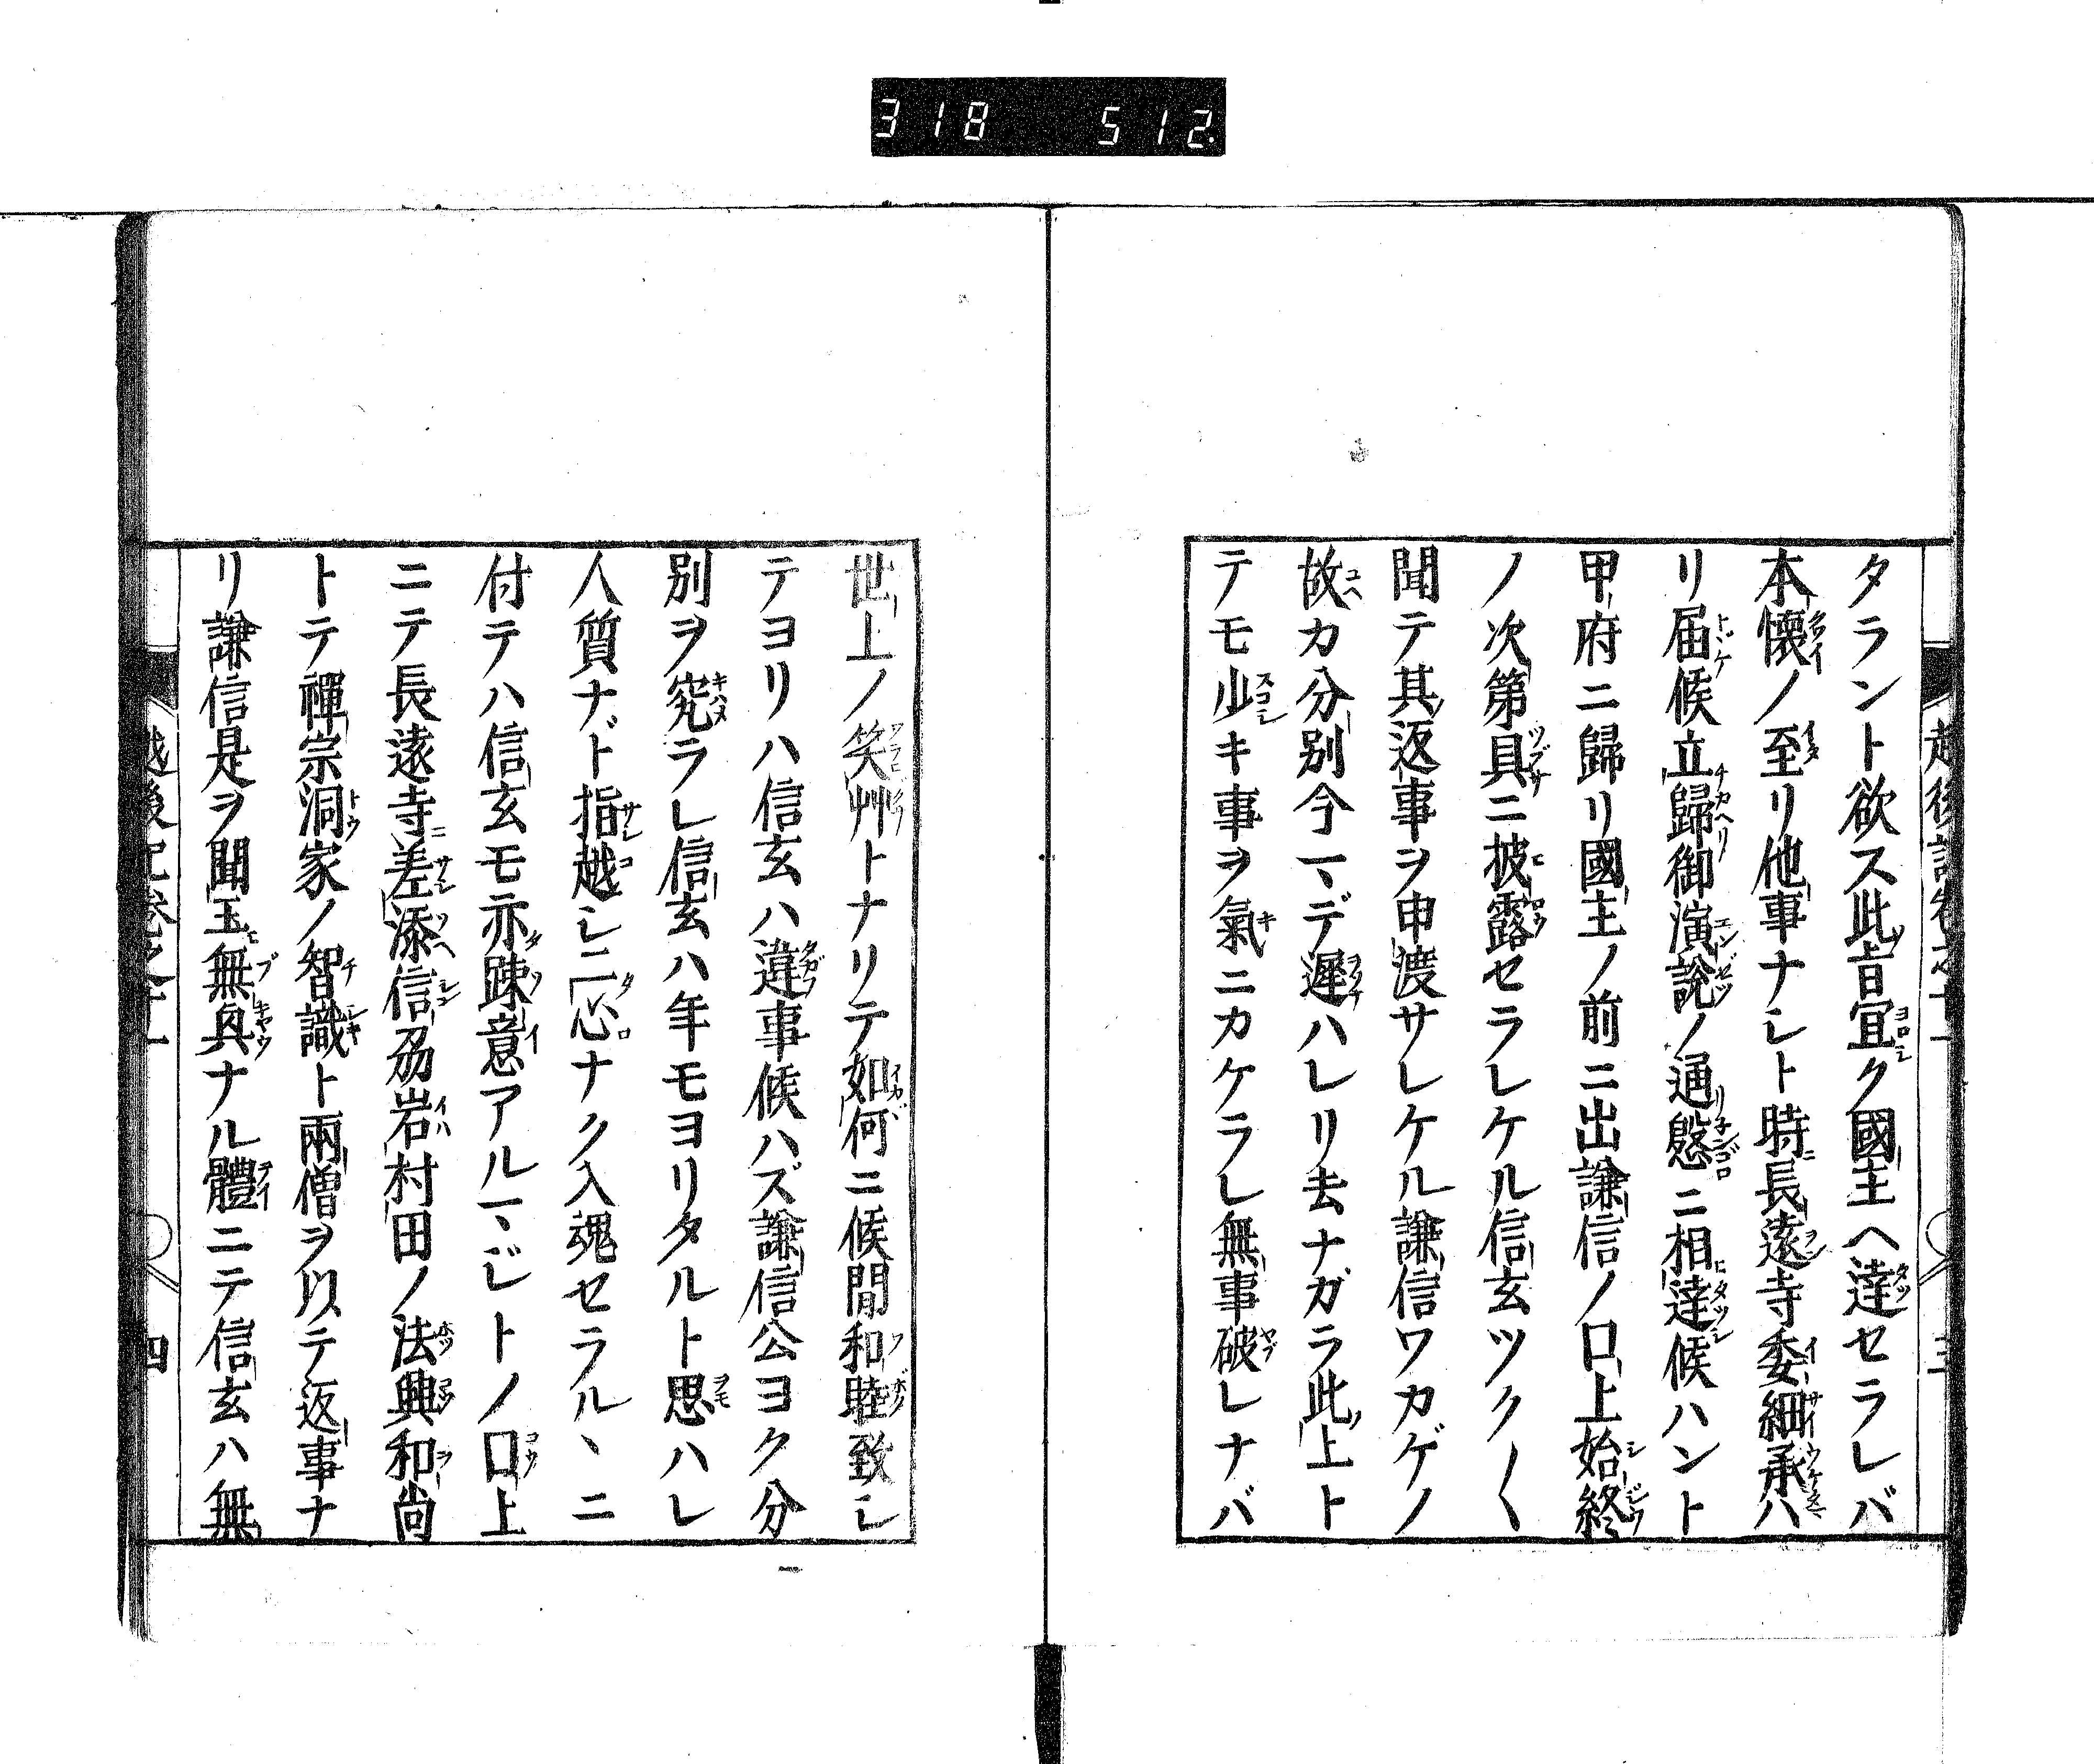 318 512
タラント欲ス此旨宜ク國主ヘ達セラレバ
本懐ノ至リ他事ナシト時長遠寺委細承ハ
リ届候立歸御演説ノ通慇ニ相達候ハント
甲府ニ歸リ國主ノ前ニ出謙信ノ口上始終
ノ次第具ニ披露セラレケル信玄ツク〳〵
聞テ其返事ヲ申渡サレケル謙信ワカゲノ
故カ分別今一デ遲ハレリ去ナガラ此上ト
テモ少キ事ヲ氣ニカケラレ無事破レナバ
世上ノ笑艸トナリテ如何ニ候間和睦致シ
テヨリハ信玄ハ違事候ハズ謙信公ヨク分
別ヲ究ラレ信玄ハ年モヨリタルト思ハレ
人質ナド指越シ二心ナク入魂セラルヽニ
付テハ信玄モ亦踈意アルヿジトノ口上
ニテ長遠寺差添信刕岩村田ノ法興和尚
トテ禪宗洞家ノ智識ト兩僧ヲ以テ返事ナ
リ謙信是ヲ聞玉無與ナル體ニテ信玄ハ無
越後記卷之十一 四